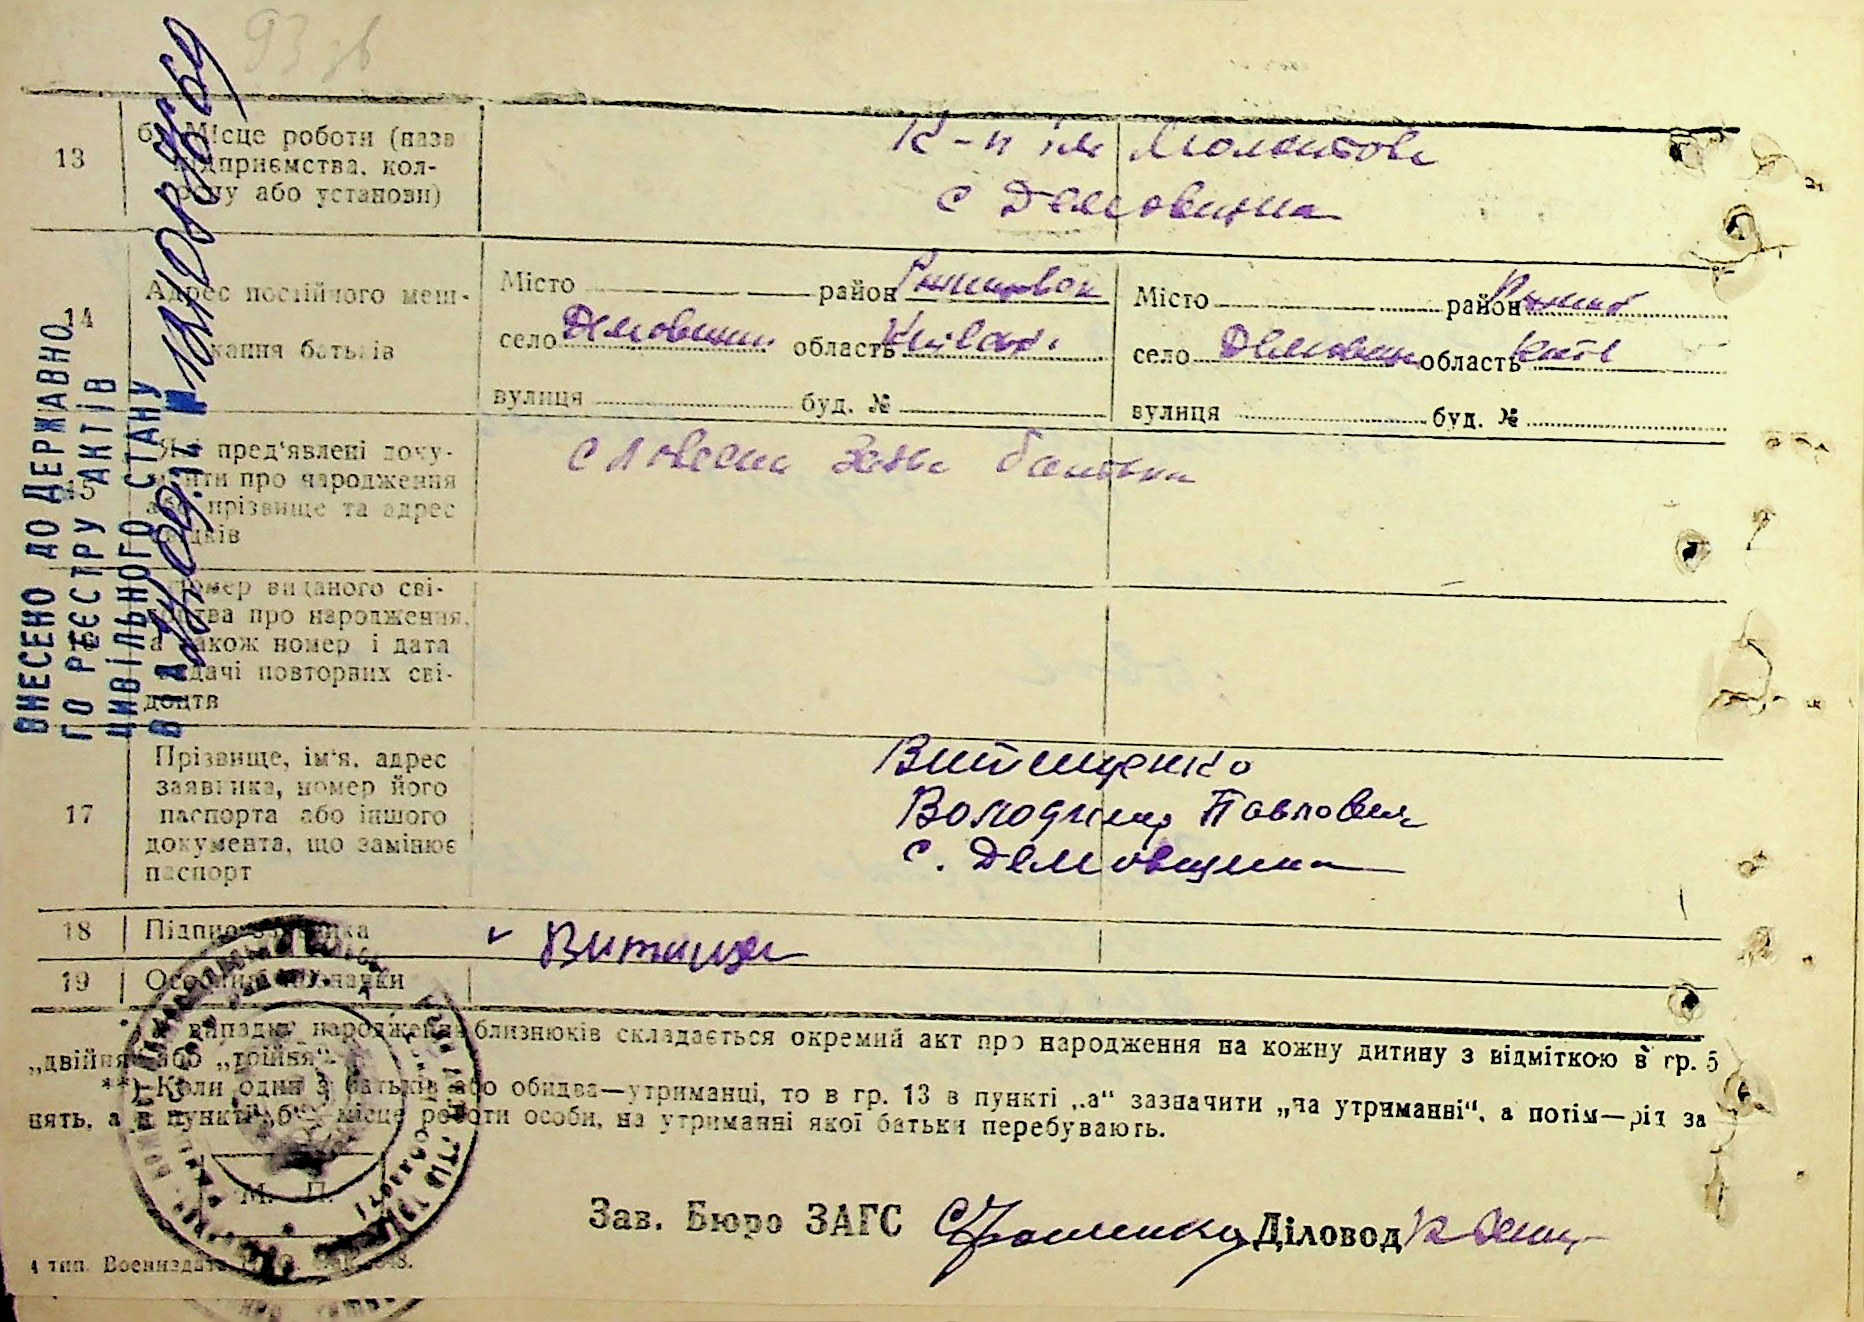 93 зв
13
б) Місце роботи (назв
підприємства, кол-
госпу або установи)
К-п ім Молотова
с Демовщина
14
Адрес постійного меш-
кання батьків
Місто район Ржищевск
село Демовщин область Київськ
вулиця буд. №
Місто район Ржищ
село Демовщин область Київ
вулиця буд. №
15
Які пред'явлені доку-
менти про народження
або прізвище та адрес
свідків
словесна заява батька
Номер виданого сві-
доцтва про народження,
а також номер і дата
видачі повторних сві-
доцтв
17
Прізвище, ім'я, адрес
заявника, номер його
паспорта або іншого
документа, що замінює
паспорт
Витищенко
Володимир Павлович
с. Демовщина
18 Підпис заявника
Витище
19 Особливі відзнаки
випадку народження близнюків складається окремий акт про народження на кожну дитину з відміткою в гр. 5
„двійня“ або „трійня“.
**) Коли один з батьків або обидва—утриманці, то в гр. 13 в пункті „а“ зазначити „на утриманні“, а потім—рід за
нять, а в пункті „б“ місце роботи особи, на утриманні якої батьки перебувають.
М. П.
Зав. Бюро ЗАГС Діловод
4 тип. Воениздата
ВНЕСЕНО ДО ДЕРЖАВНО
ГО РЕЄСТРУ АКТІВ
ЦИВІЛЬНОГО СТАНУ
ВІД